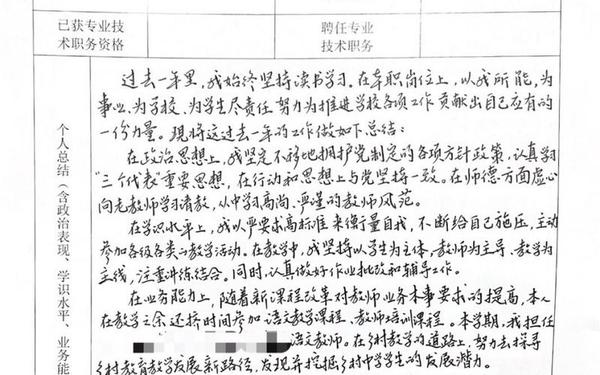 已获专业技
术职务资格
聘任专业
技术职务
个人总结（含政治表现、学识水平、业务能
过去一年里，我始终坚持读书学习。在本职岗位上，以我所能，为
事业、为学校、为学生尽责任，努力为推进学校各项工作贡献出自己应有的
一份力量。现将这过去一年的工作做如下总结：
在政治思想上，我坚定不移地拥护党制定的各项方针政策，认真学习
“三个代表”重要思想，在行动和思想上与党坚持一致。在师德方面虚心
向老教师学习请教，从中学习高尚、严谨的教师风范。
在学识水平上，我以严要求高标准来衡量自我，不断给自己施压，主动
参加各级各类教学活动。在教学中，我坚持以学生为主体，教师为主导、教学为
主线，注重讲练结合。同时，认真做好作业批改和辅导工作。
在业务能力上，随着新课程改革对教师业务本事要求的提高，本人
在教学之余还挤时间参加语文教学课程、教师培训课程。本学期，我担任
语文教师。在乡村教学的道路上，努力去探寻
乡村教育教学发展新路径，发现并挖掘乡村中学学生的发展潜力。